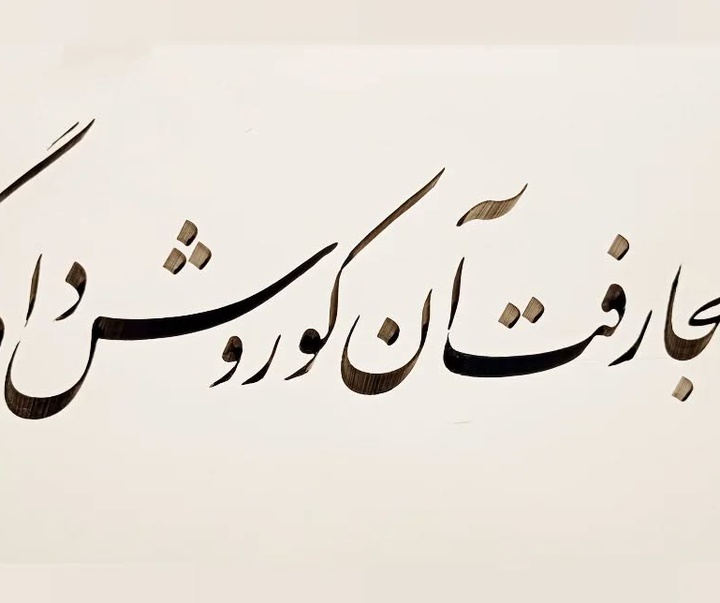 جا رفت آن کوروش دا